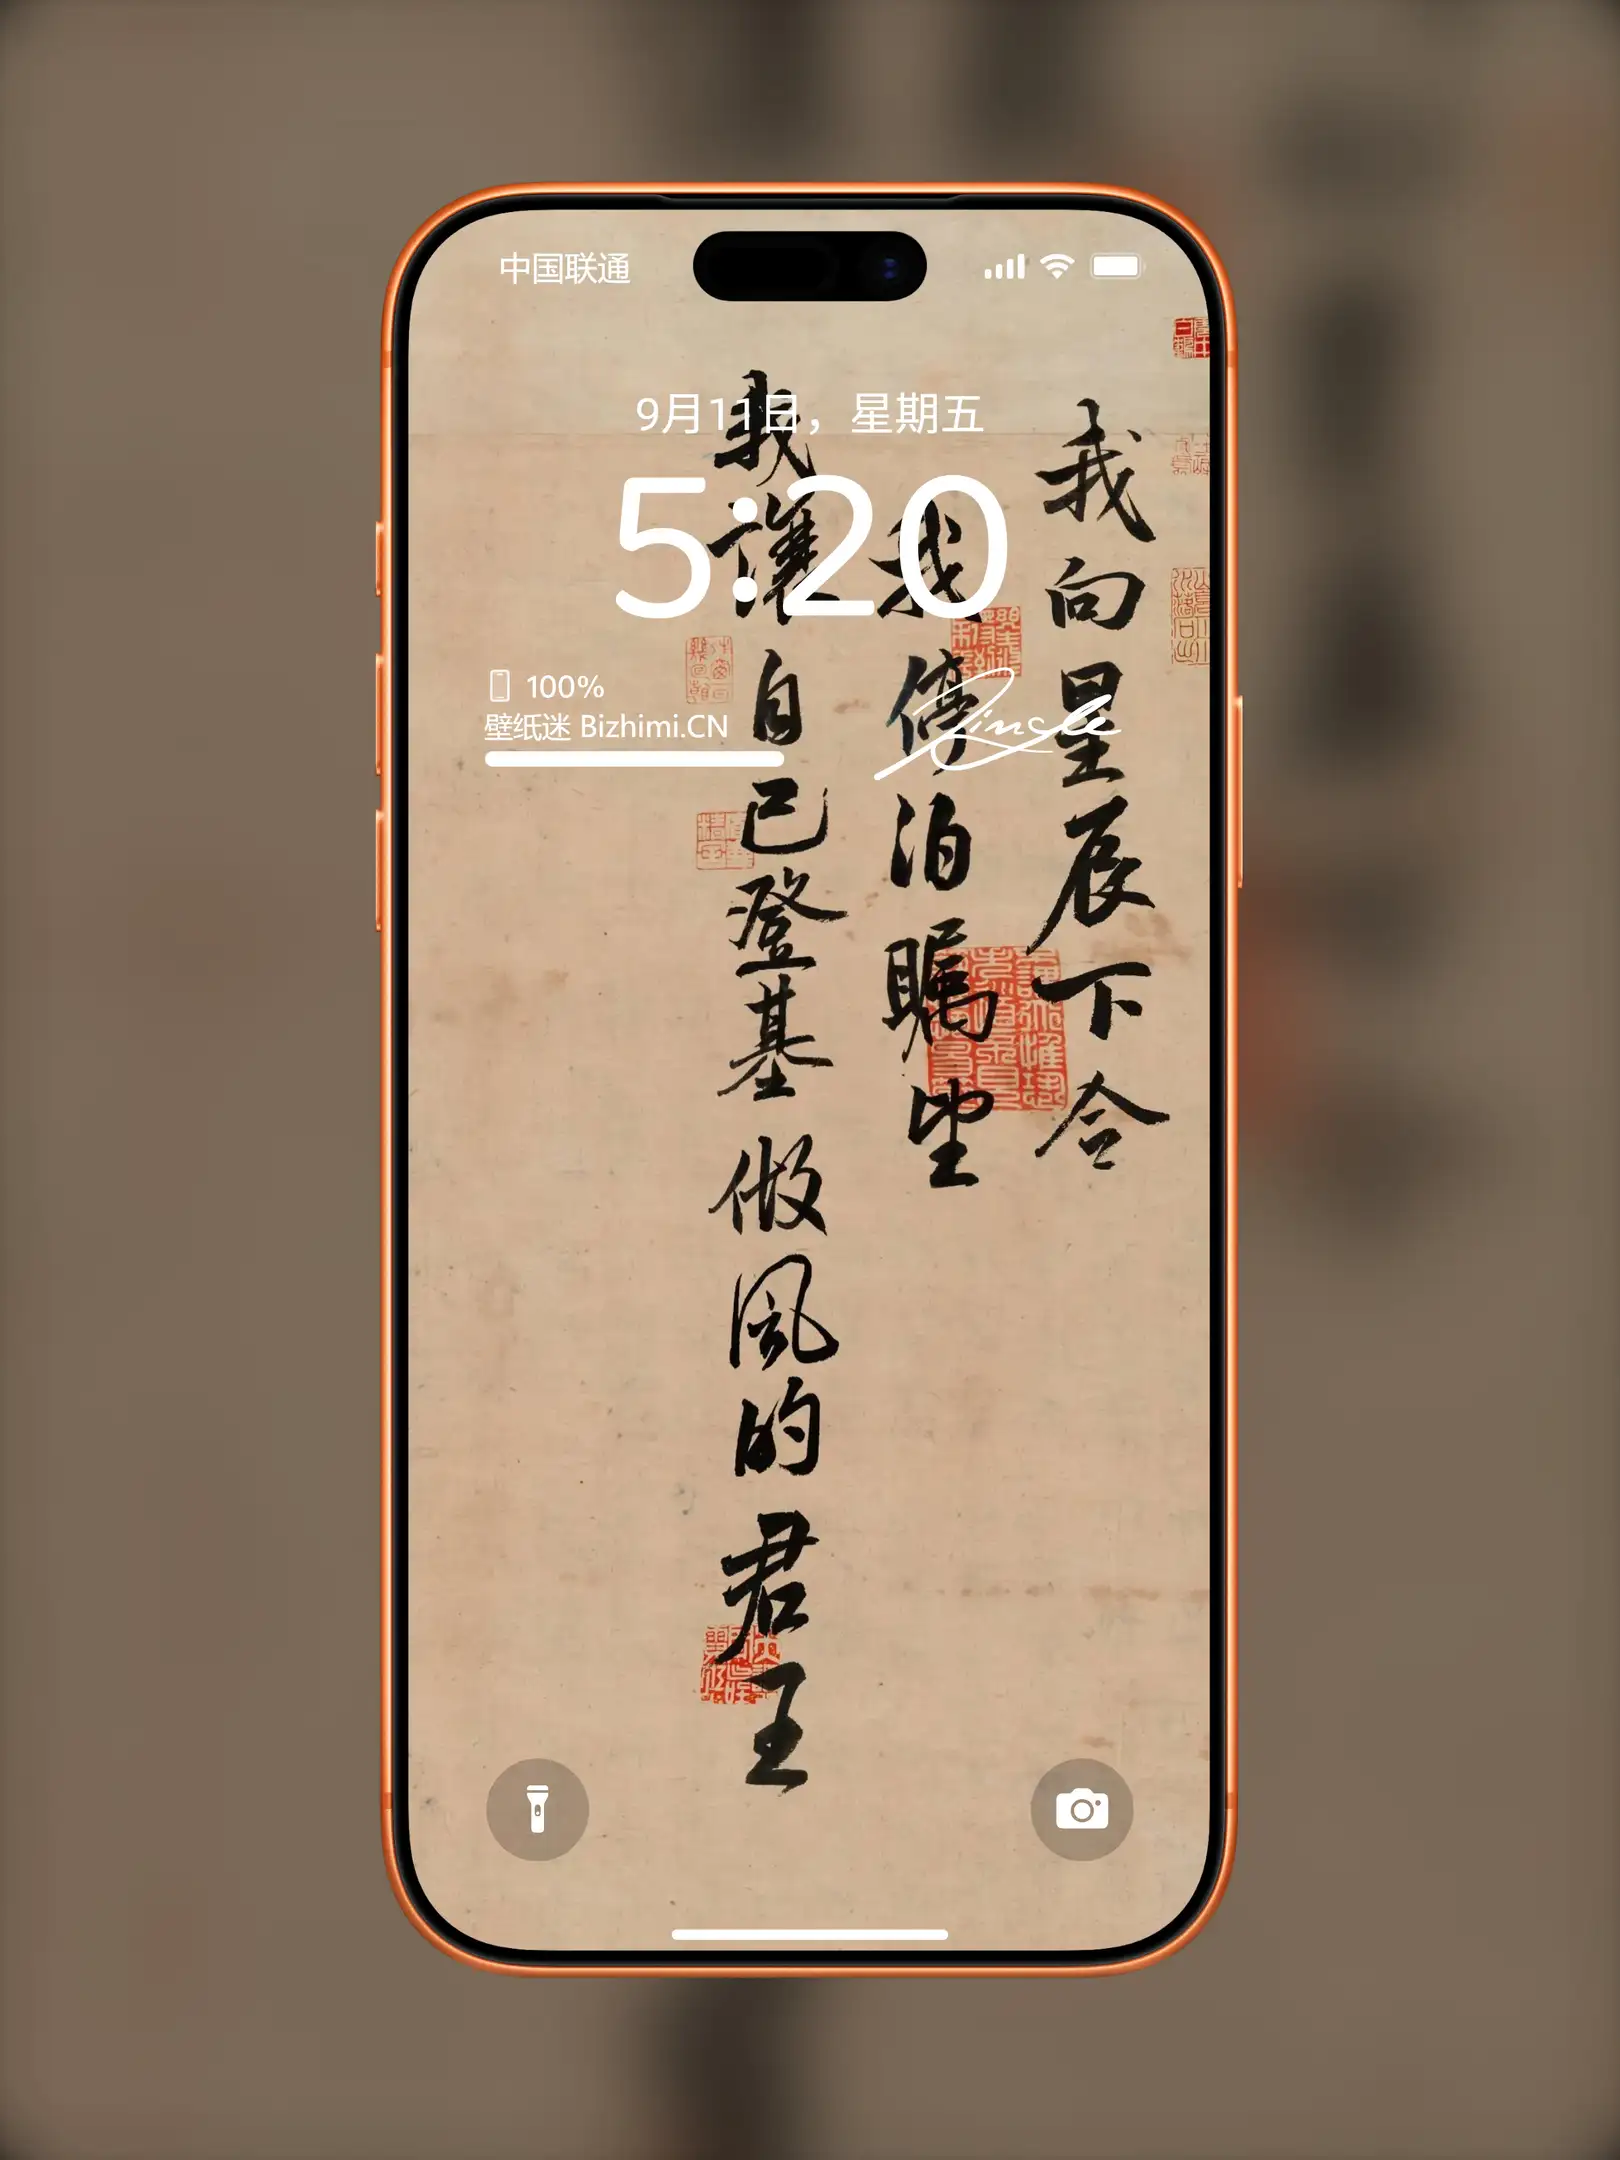 中国联通
9月11日，星期五
5:20
100%
壁纸迷 Bizhimi.CN
我向星辰下令
我停泊瞩望
我讓自己登基做风的君王